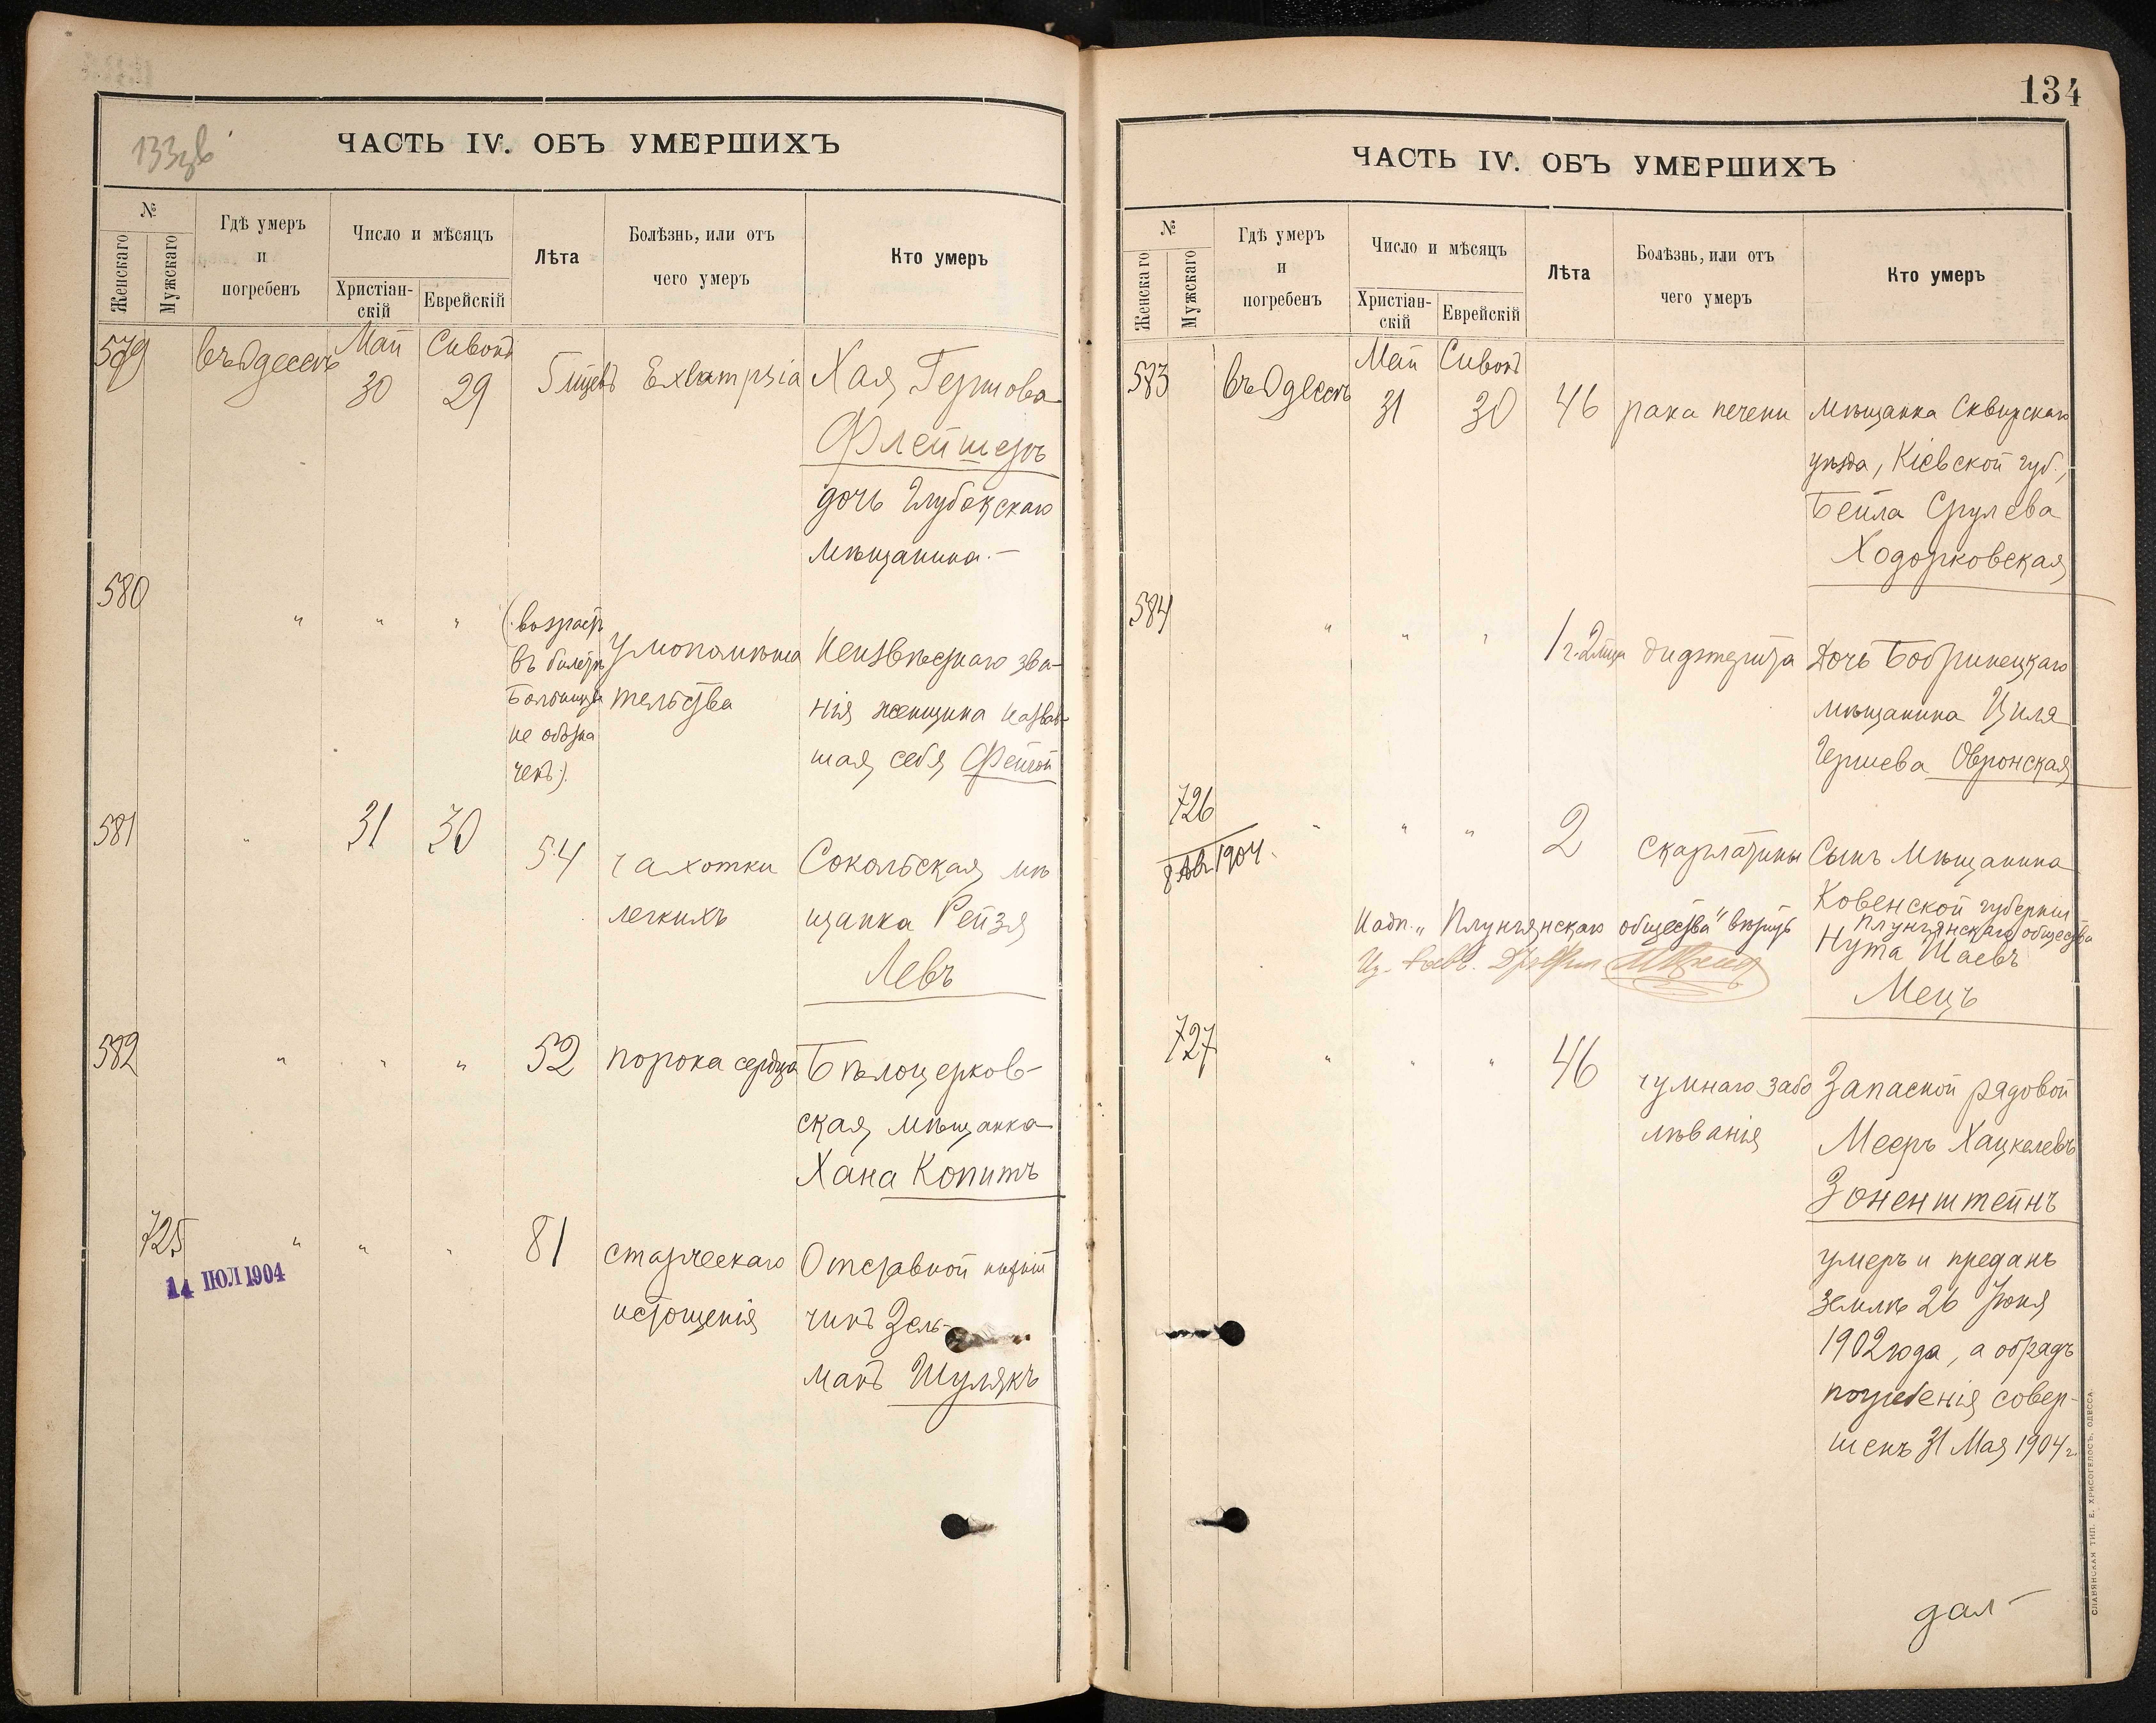 133об
ЧАСТЬ IV. ОБЪ УМЕРШИХЪ
№
Женскаго
Мужскаго
Гдѣ умеръ
и
погребенъ
Число и мѣсяцъ
Христіан-
скій
Еврейскій
Лѣта
Болѣзнь, или отъ
чего умеръ
Кто умеръ
579
въ Одессѣ
Май
30
Сивонъ
29
5 мцевъ
Exlampsia
Хая Гершова
Флейшеръ
дочь Глубокскаго
мѣщанина.-
580
" " "
(возрастъ
въ билетѣ
Больницы
не обозна
ченъ).
Умопомѣша
тельства
Неизвѣстнаго зва-
нія женщина назвав-
шая себя Фейгой
581
"
31
30
54
чахотки
легкихъ
Сокольская мѣ
щанка Рейзя
Левъ
582
" " "
52
порока сердца
Бѣлоцерков-
ская мѣщанка
Хана Копитъ
725
14 ІЮЛ 1904
" " "
81
старческаго
истощенія
Отставной нижній
чинъ Зель-
манъ Шулякъ
134
ЧАСТЬ IV. ОБЪ УМЕРШИХЪ
№
Женскаго
Мужскаго
Гдѣ умеръ
и
погребенъ
Число и мѣсяцъ
Христіан-
скій
Еврейскій
Лѣта
Болѣзнь, или отъ
чего умеръ
Кто умеръ
583
въ Одессѣ
Май
31
Сивонъ
30
46
рака печени
мѣщанка Сквирскаго
уѣзда, Кіевской губ.,
Бейла Срулева
Ходорковская
584
" " "
1 г. 2 мца
дифтерита
Дочь Бобринецкаго
мѣщанина Циля
Гершева Овронская
726
8 Авг 1904
" " "
2
скарлатины
Сынъ Мѣщанина
Ковенской губерніи
Плунгянскаго общества
Нута Шаевъ
Мецъ
Надп. „Плунгянскаго общества" вѣрить
727
" " "
46
чумнаго забо
лѣванія
Запасной рядовой
Мееръ Хацкелевъ
Зоненштейнъ
умеръ и преданъ
землѣ 26 Іюня
1902 года, а обрядъ
погребенія совер-
шенъ 31 Мая 1904 г.
дал-
СЛАВЯНСКАЯ ТИП. Е. ХРИСОГЕЛОСЪ, ОДЕССА.